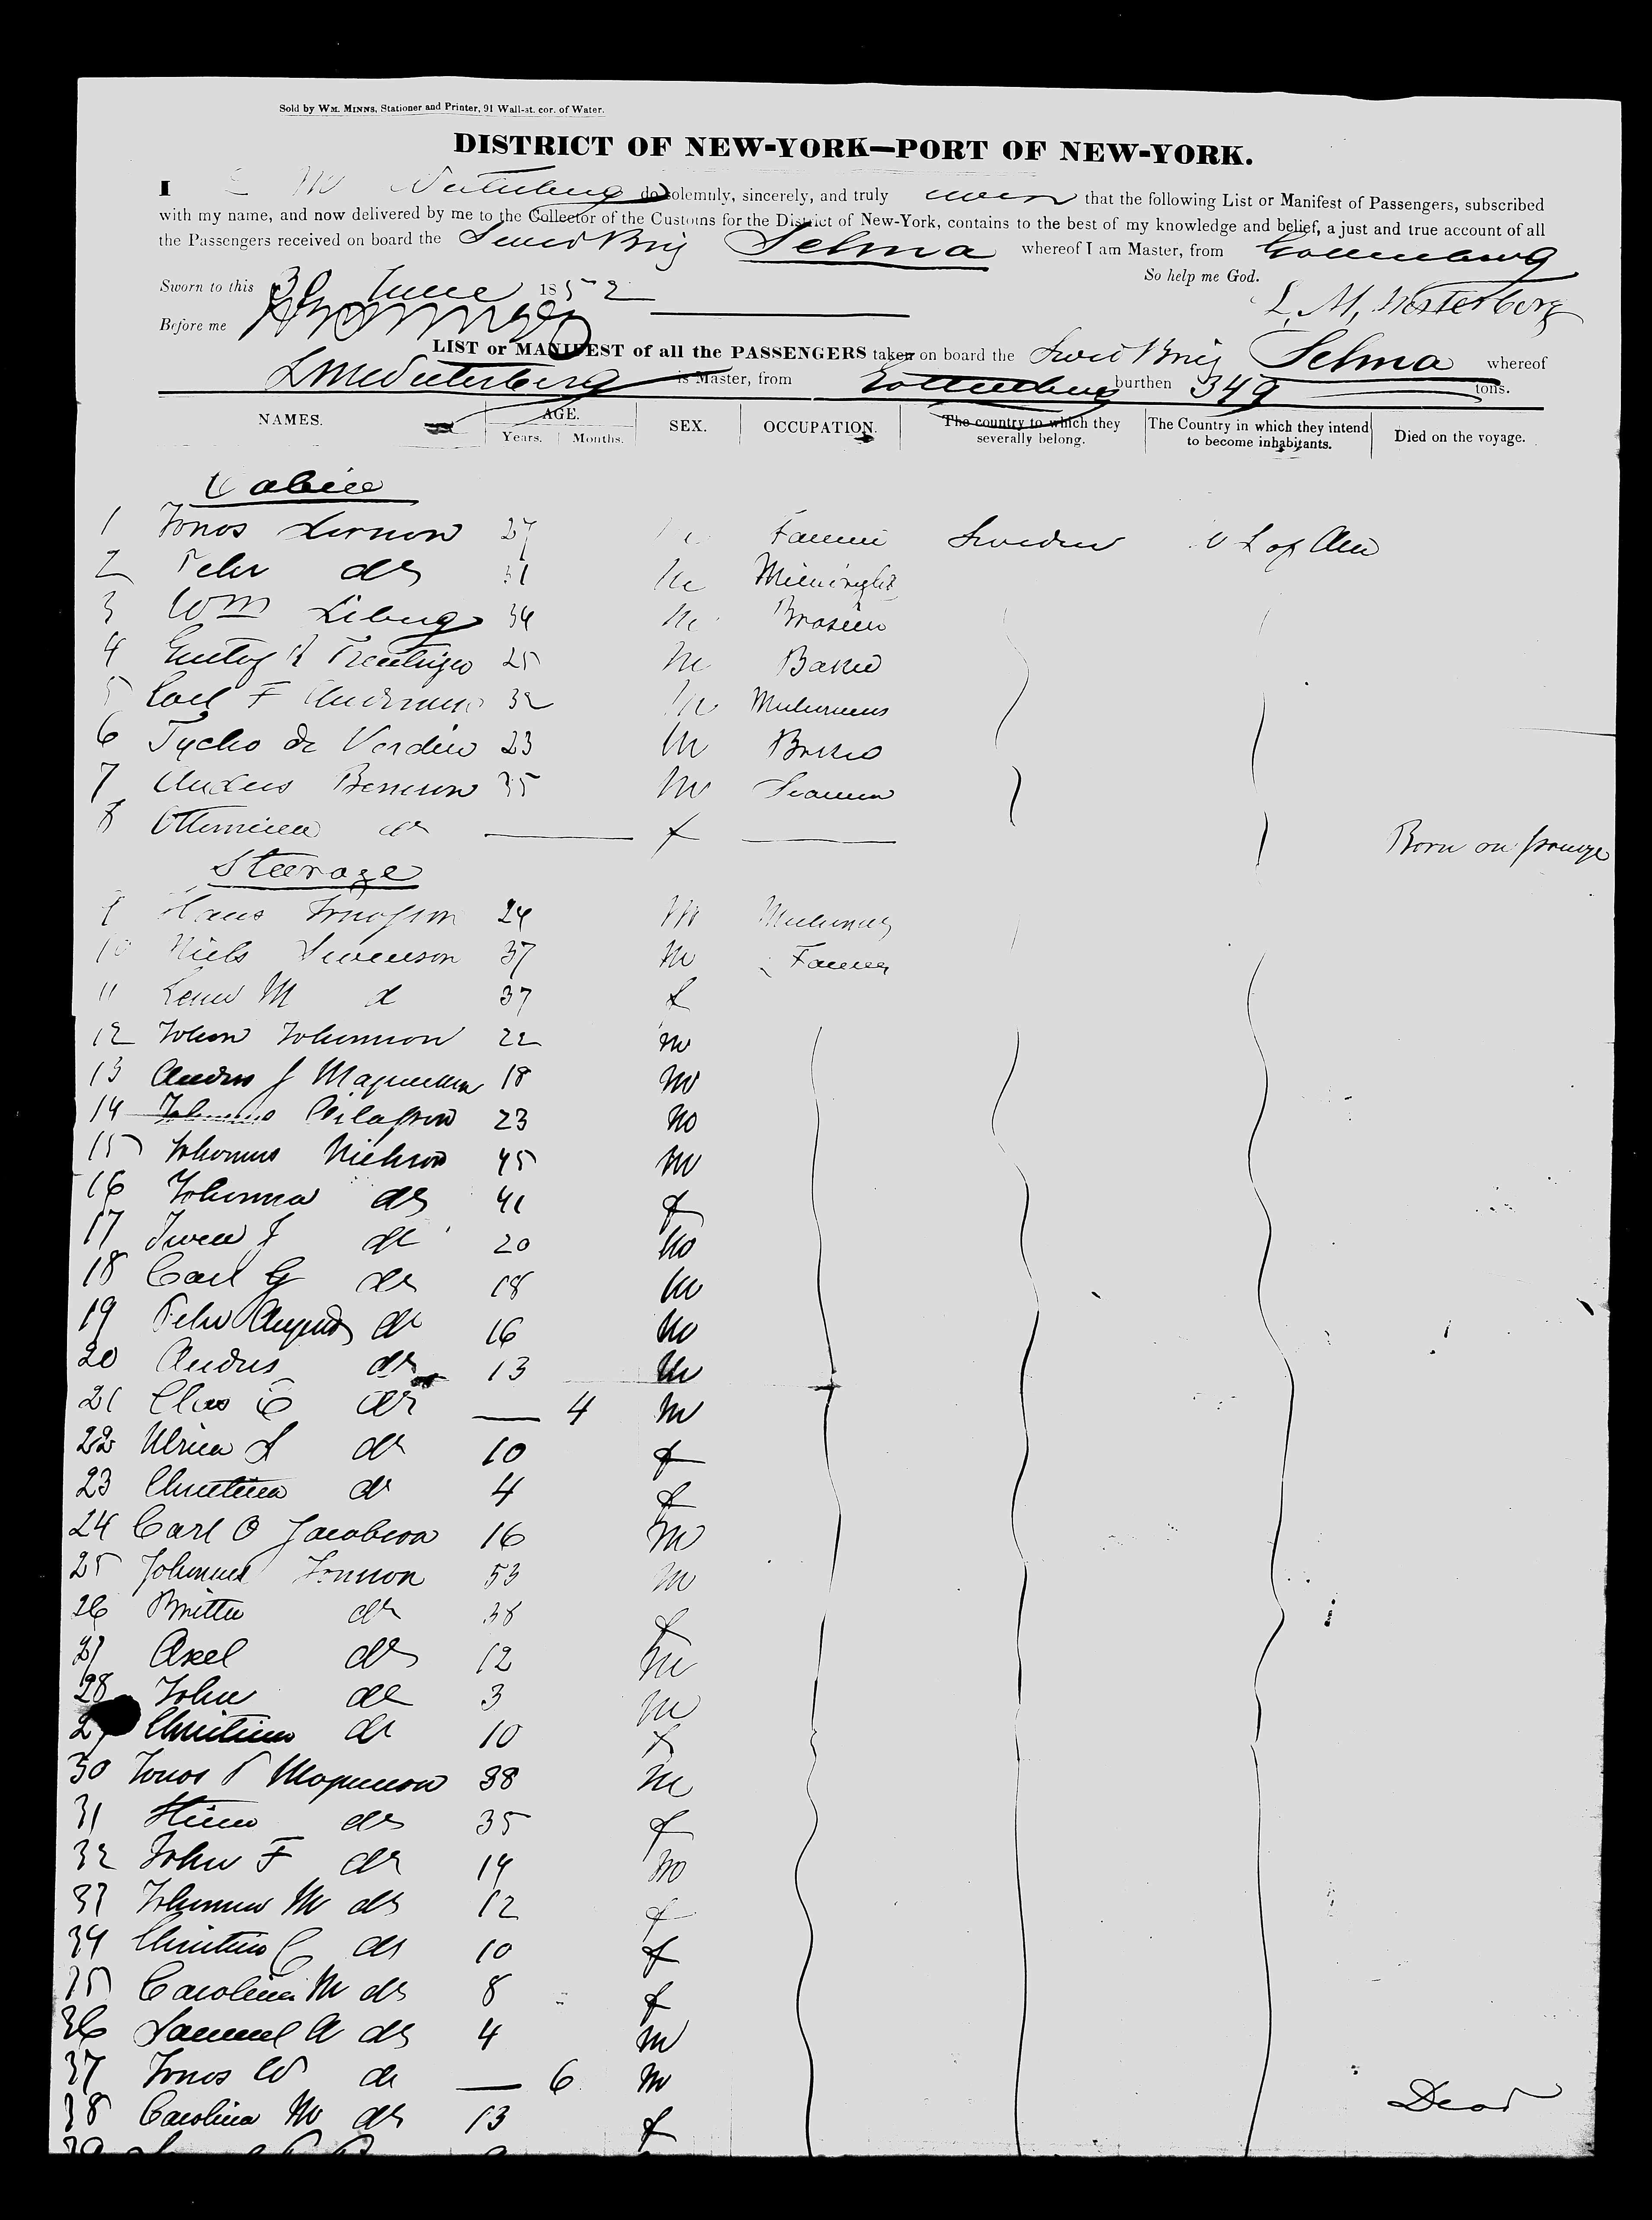 Sold by WM. MINNS, Stationer and Printer, 91 Wall-st. cor. of Water.
DISTRICT OF NEW-YORK—PORT OF NEW-YORK.
I L M Westerberg do solemnly, sincerely, and truly swear that the following List or Manifest of Passengers, subscribed
with my name, and now delivered by me to the Collector of the Customs for the District of New-York, contains to the best of my knowledge and belief, a just and true account of all
the Passengers received on board the Swed Brig Selma whereof I am Master, from Gottenburg
So help me God.
Sworn to this 30 June 1852
L. M. Westerberg
Before me
LIST or MANIFEST of all the PASSENGERS taken on board the Swed Brig Selma whereof
L M Westerberg is Master, from Gottenburg burthen 349 tons.
NAMES. AGE. Years. Months. SEX. OCCUPATION. The country to which they severally belong. The Country in which they intend to become inhabitants. Died on the voyage.
Cabin
1 Jonas 27 m Farmer Sweden U S of Am
2 Pehr do 31 m Millwright
3 Wm 34 m
4 Gustof 25 m Baker
5 Carl F 32 m
6 Tycho 23 m
7 Anders Benson 35 m Seaman
8 do — f — Born on passage
Steerage
9 Hans 24 m
10 Niels Swenson 37 m Farmer
11 M d 37 f
12 Johan Johanson 22 m
13 Andrs J Magnusson 18 m
14 23 m
15 Johannes 45 m
16 Johanna do 41 f
17 Swen J do 20 m
18 Carl G do 18 m
19 Pehr August do 16 m
20 Andrs do 13 m
21 Clas do — 4 m
22 Ulrica S do 10 f
23 Christina do 4 f
24 Carl O Jacobson 16 m
25 Johannes Jonson 53 m
26 Britta do 38 f
27 Axel do 12 m
28 John do 3 m
29 Christina do 10 f
30 Jonas P Magnuson 38 m
31 Stina do 35 f
32 John F do 14 m
33 Johanna M do 12 f
34 Christina C do 10 f
35 Carolina M do 8 f
36 Samuel A do 4 m
37 Jonas W do — 6 m Dead
38 Carolina M do 13 f
39